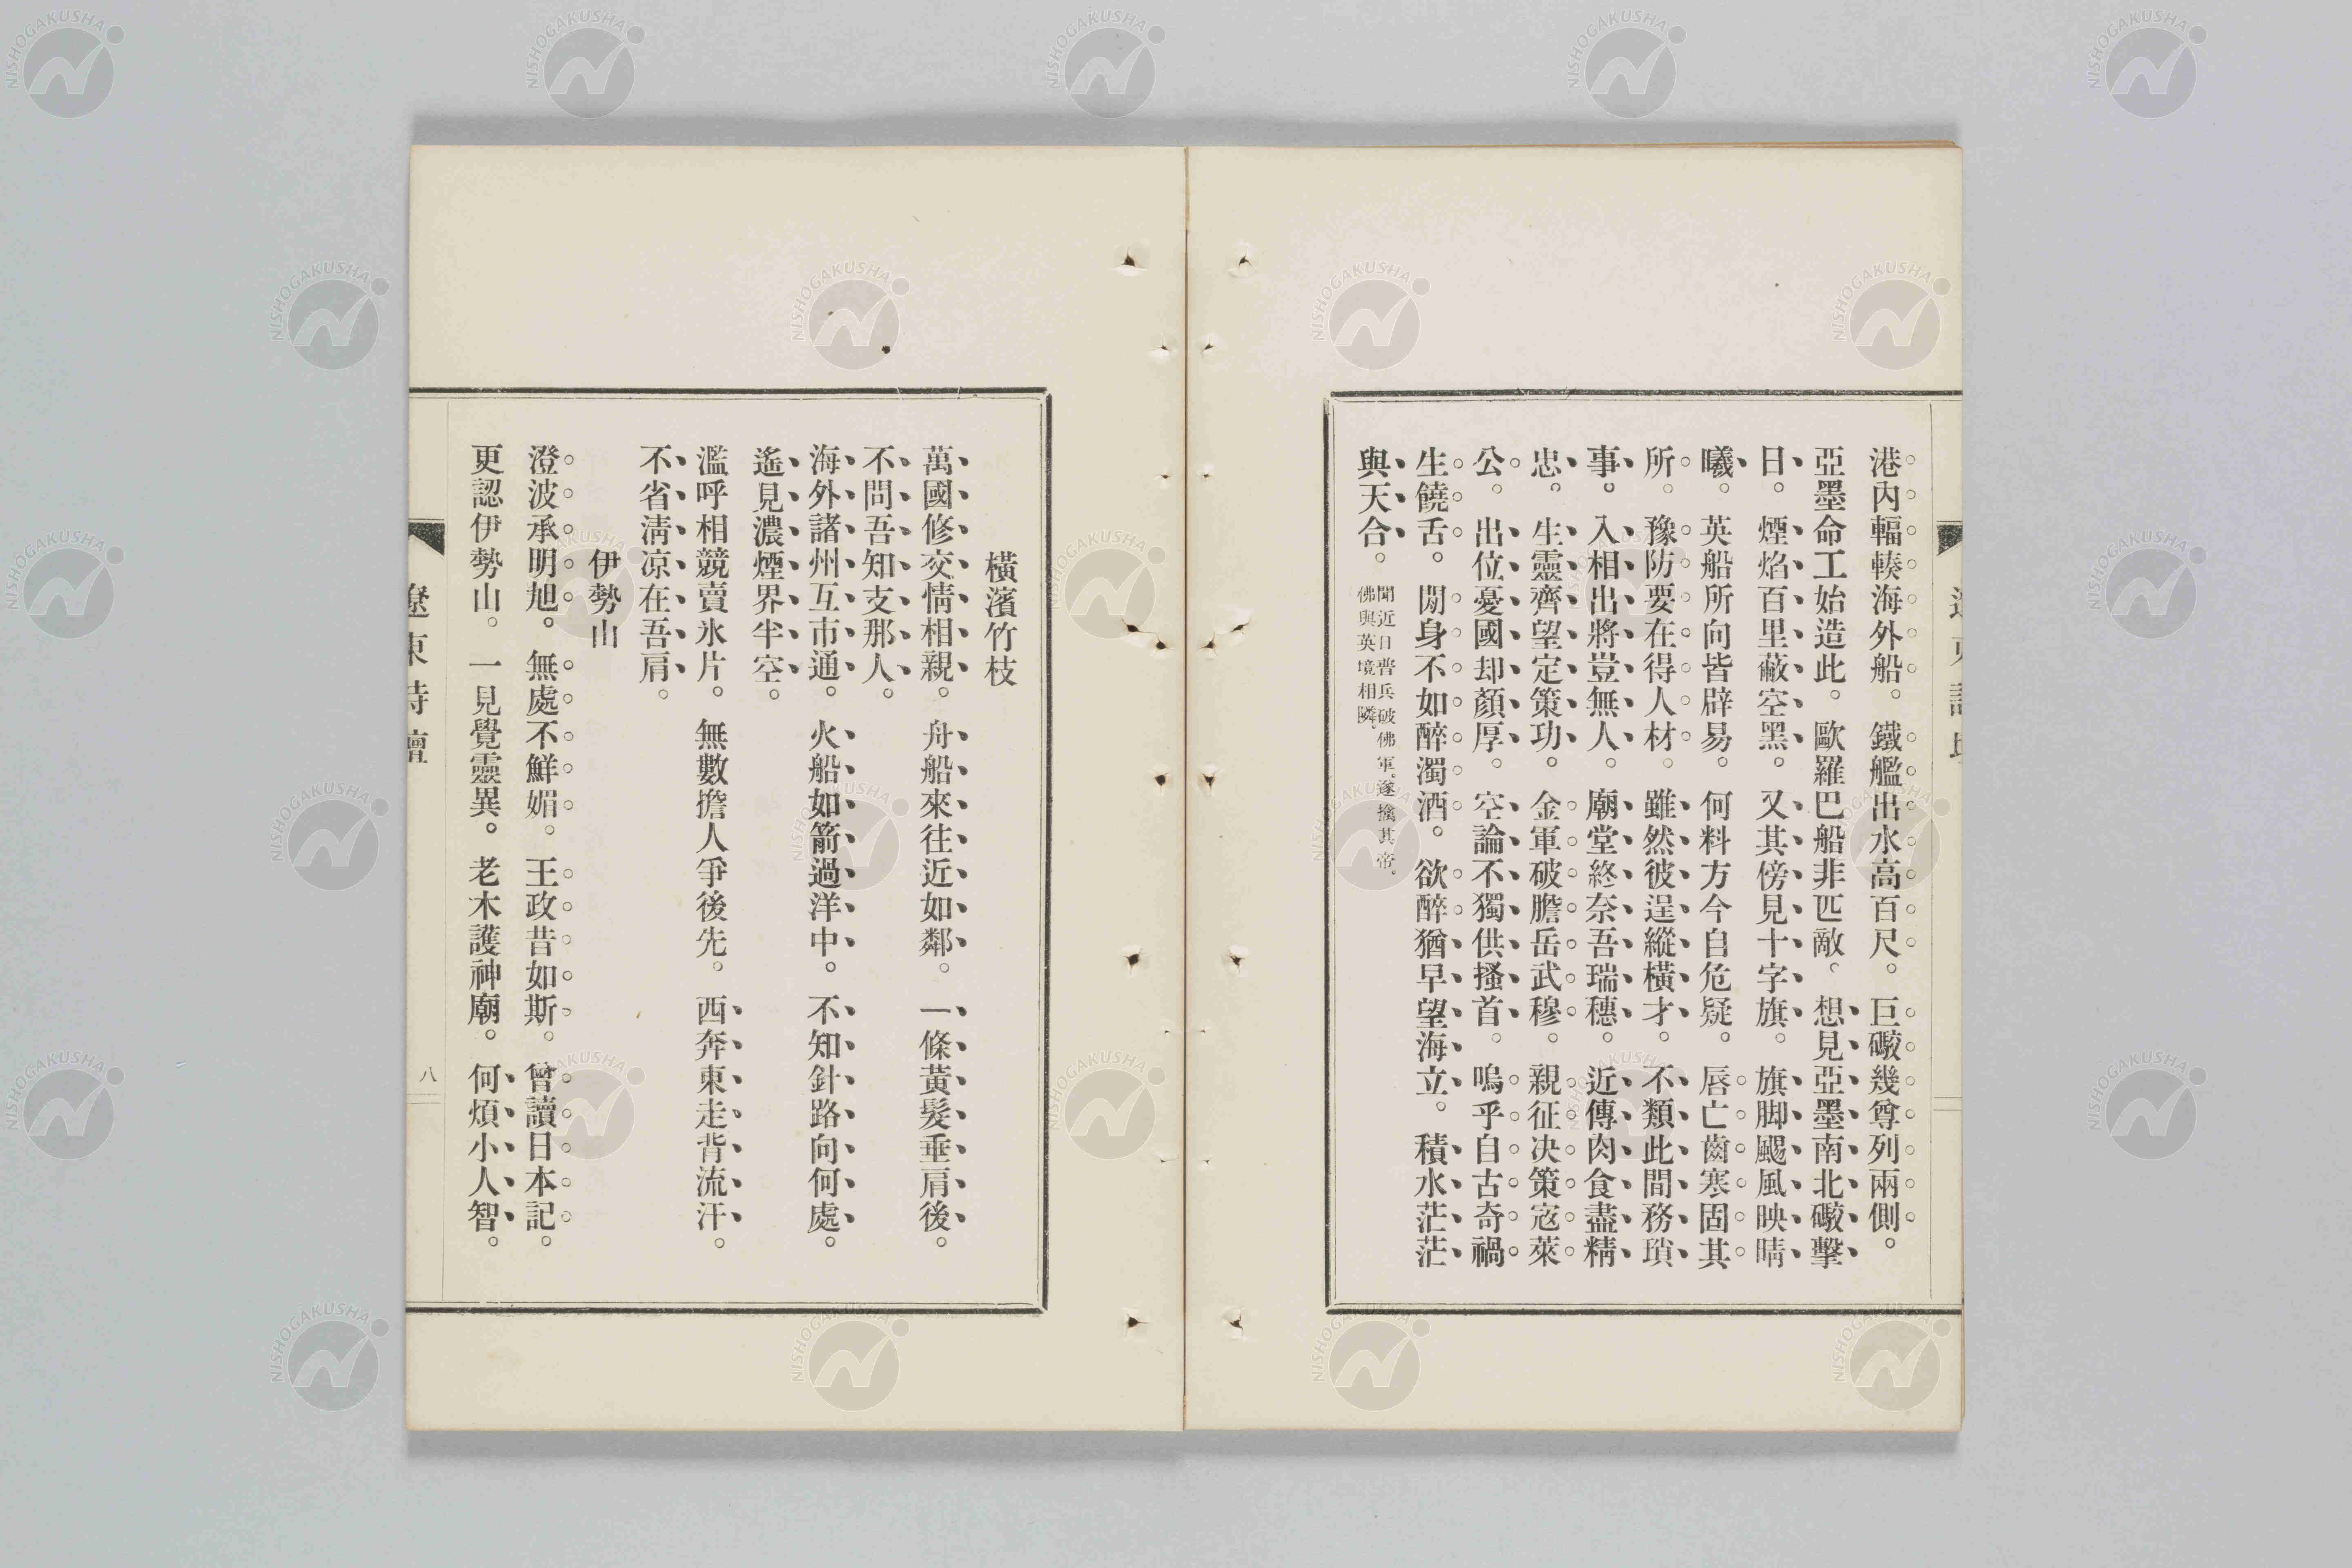 港內輻輳海外船。鐵艦出水高百尺。巨礮幾尊列兩側。
亞墨命工始造此。歐羅巴船非匹敵。想見亞墨南北礮擊
日。煙焰百里蔽空黑。又其傍見十字旗。旗脚颺風映晴
曦。英船所向皆辟易。何料方今自危疑。唇亡齒寒固其
所。豫防要在得人材。雖然彼逞縱橫才。不類此間務瑣
事。入相出將豈無人。廟堂終奈吾瑞穗。近傳肉食盡精
忠。生靈齊望定策功。金軍破膽岳武穆。親征决策寇萊
公。出位憂國却顏厚。空論不獨供搔首。嗚乎自古奇禍
生饒舌。閒身不如醉濁酒。欲醉猶早望海立。積水茫茫
與天合。
聞近日普兵破佛軍、遂擒其帝。
佛與英境相隣、
橫濱竹枝
萬國修交情相親。舟船來往近如鄰。一條黃髮垂肩後。
不問吾知支那人。
海外諸州互市通。火船如箭過洋中。不知針路向何處。
遙見濃煙界半空。
濫呼相競賣氷片。無數擔人爭後先。西奔東走背流汗。
不省淸凉在吾肩。
伊勢山
澄波承明旭。無處不鮮媚。王政昔如斯。曾讀日本記。
更認伊勢山。一見覺靈異。老木護神廟。何煩小人智。
遼東詩壇
八
NISHOGAKUSHA